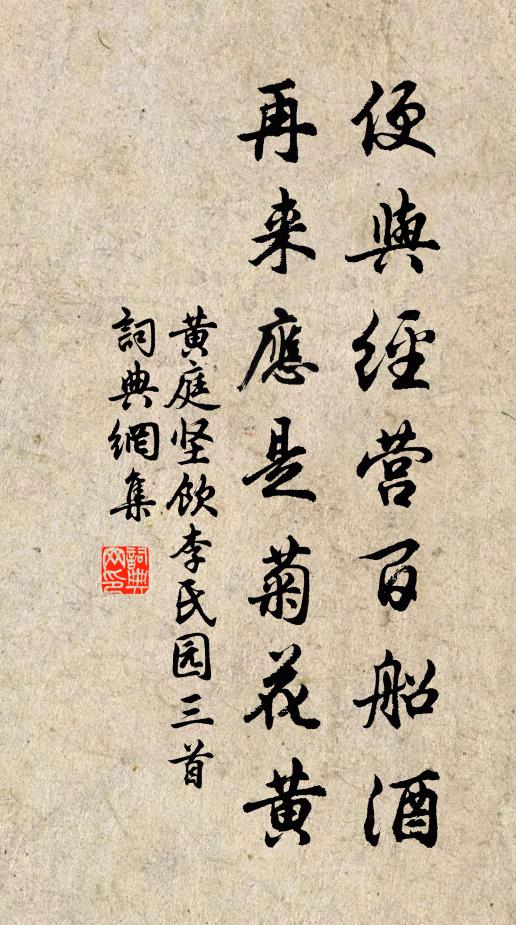 便與經营百船酒
再来應是菊花黄
黄庭坚飲李氏园三首
詞典網集
詞典网印